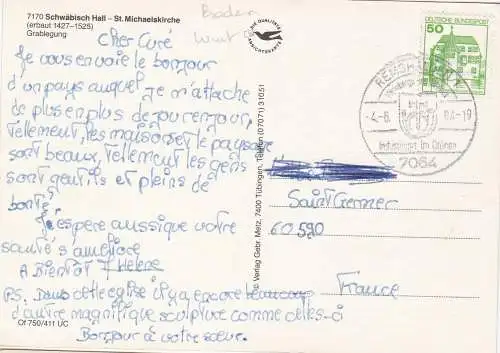 7170 Schwäbisch Hall – St. Michaelskirche
(erbaut 1427–1525)
Grablegung
Baden
Wurt
DIE QUALITÄTS
ANSICHTSKARTE
Cher Curé
Je vous envoie le bonjour
d'un pays auquel je m'attache
de plus en plus de jour en jour,
tellement, les maisons et le paysage
sont beaux, tellement les gens
sont gentils et pleins de
bonté.
J'espère aussi que votre
santé s'améliore
A Bientôt Helene
P.S. Dans cette église il y a encore beaucoup
d'autre magnifique sculpture comme celles-ci
Bonjour à votre sœur.
Of 750/411 UC
Verlag Gebr. Metz, 7400 Tübingen, Telefon (07071) 31051
DEUTSCHE BUNDESPOST
50
REMSHALDEN
-4.-6.
84-19
Industrieort im Grünen
7064
Saint Germer
60590
France